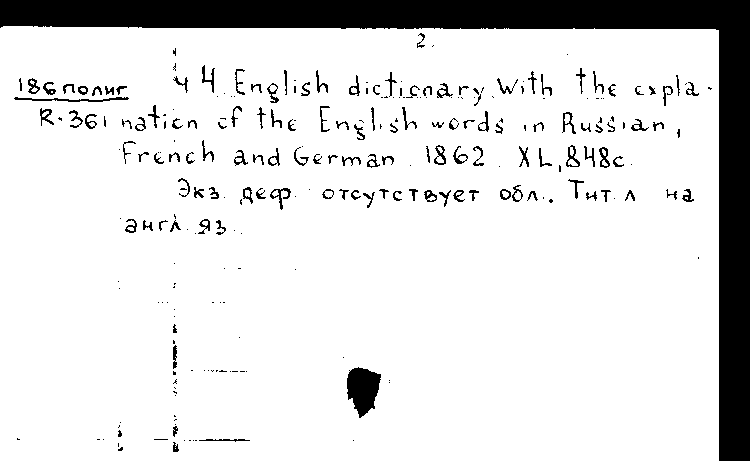 2.
186 полиг ч 4 English dictionary With the expla-
R-361 nation of the English words in Russian,
French and German. 1862. XL, 848c.
Экз. деф. отсутствует обл. Тит. л. на
англ. яз.